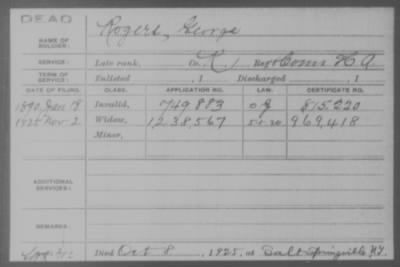 DEAD
NAME OF SOLDIER: Rogers, George
SERVICE: Late rank, Co. K, 1 Reg't Conn H A
TERM OF SERVICE: Enlisted , 1 Discharged , 1
DATE OF FILING. CLASS. APPLICATION NO. LAW. CERTIFICATE NO.
1890, Jan 18 Invalid, 749,883 815,220
1925 Nov. 2 Widow, 1,238,567 969,418
Minor,
ADDITIONAL SERVICES:
REMARKS:
Died Oct 8, 1925, at Springville N.Y.